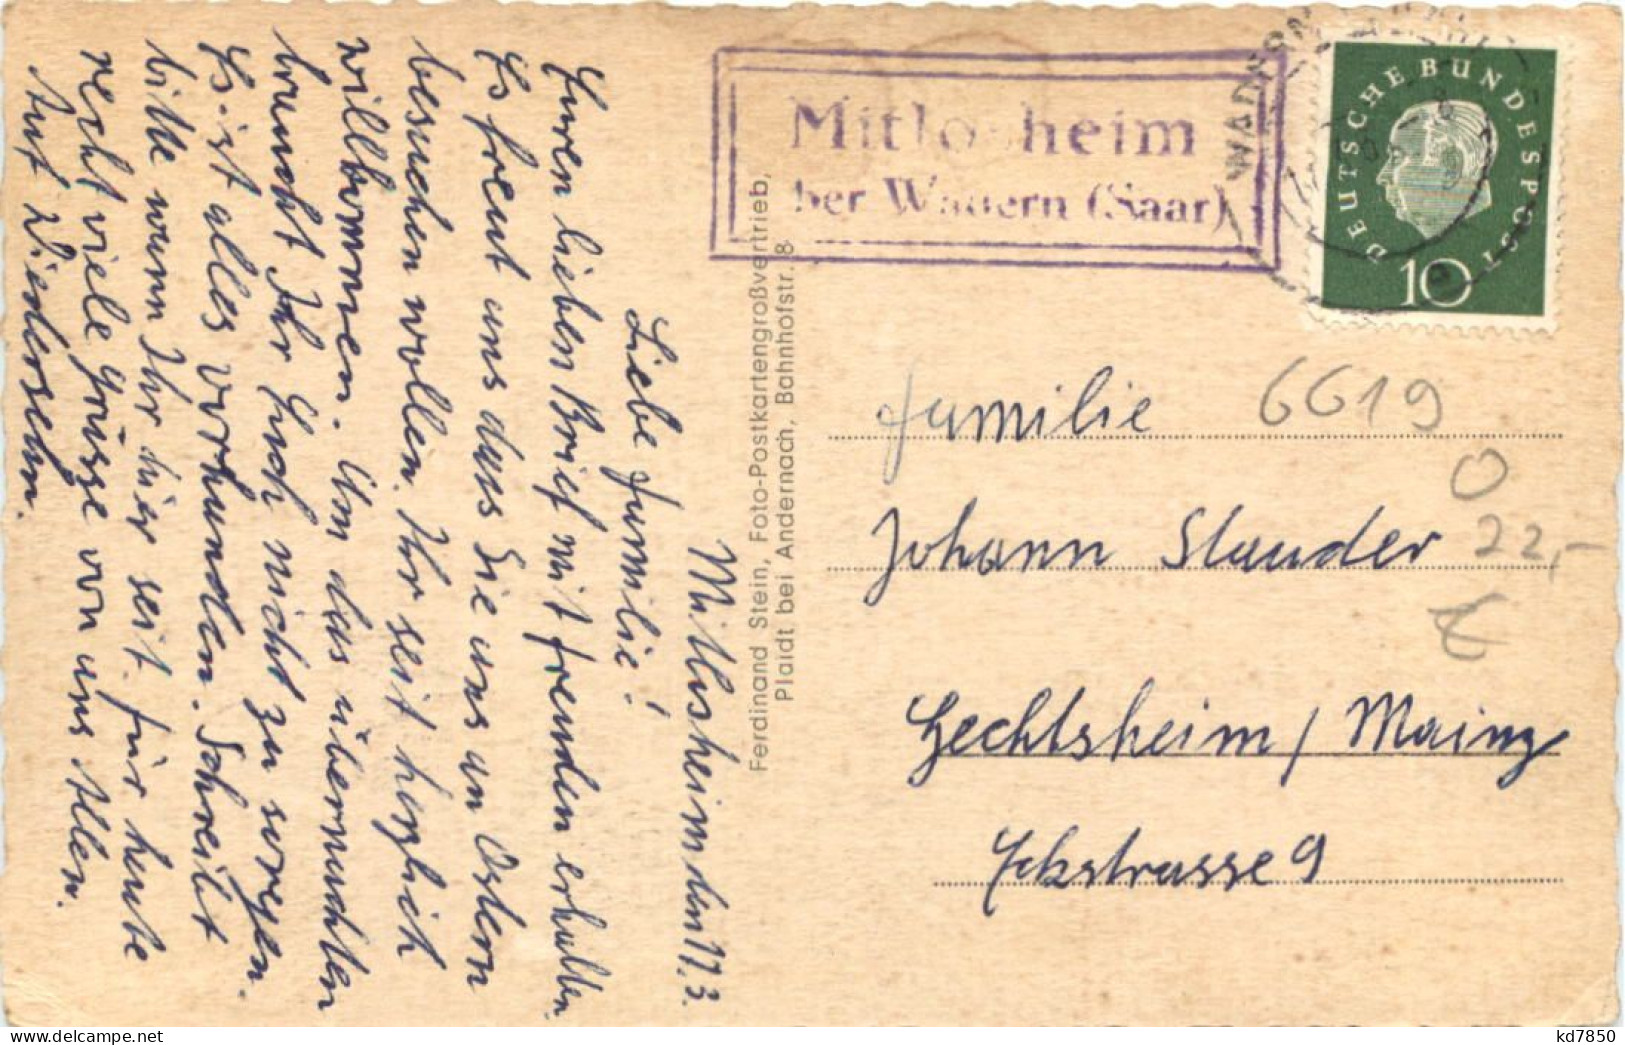 Mitlosheim den 17.3.
Liebe Familie!
Euren lieben Brief mit freuden erhalten.
Es freut uns dass Sie uns an Ostern
besuchen wollen. Ihr seit herzlich
willkommen. Um das übernachten
braucht Ihr Euch nicht zu sorgen.
Es ist alles vorhanden. Schreibt
bitte wann Ihr hier seit. für heute
recht viele Grüsse von uns Allen.
Auf Wiedersehn.
Ferdinand Stein, Foto-Postkartengroßvertrieb,
Plaidt bei Andernach, Bahnhofstr. 8
Mitlosheim
über Wadern (Saar)
WADERN
DEUTSCHE BUNDESPOST
10
6619
0
22,-
€
Familie
Johann Stauder
Hechtsheim / Mainz
Eckstrasse 9
kd7850